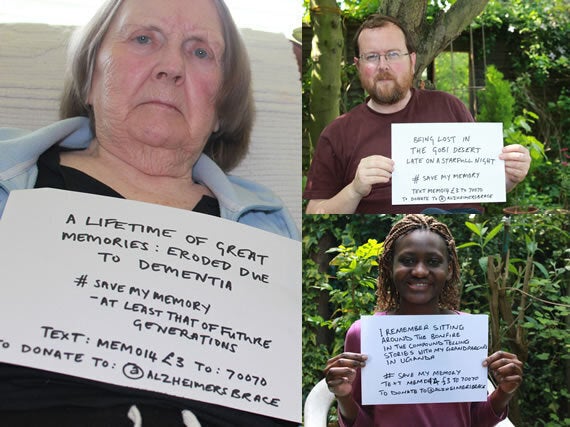 A LIFETIME OF GREAT
MEMORIES: ERODED DUE
TO DEMENTIA
# SAVE MY MEMORY
- AT LEAST THAT OF FUTURE
GENERATIONS
TEXT: MEMO14 £3 TO: 70070
TO DONATE TO: @ALZHEIMERSBRACE
BEING LOST IN
THE GOBI DESERT
LATE ON A STARFULL NIGHT
# SAVE MY MEMORY
TEXT MEMO14 £3 TO 70070
TO DONATE TO @ALZHEIMERSBRACE
I REMEMBER SITTING
AROUND THE BONFIRE
IN THE COMPOUND TELLING
STORIES WITH MY GRANDPARENTS
IN UGANDA
# SAVE MY MEMORY
TEXT MEMO14 £3 TO 70070
TO DONATE TO @ALZHEIMERSBRACE